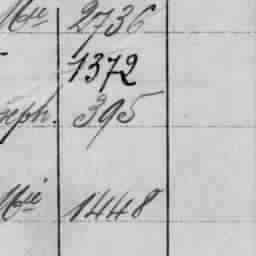 Mie 2736
1372
seph. 395
Mie 1448